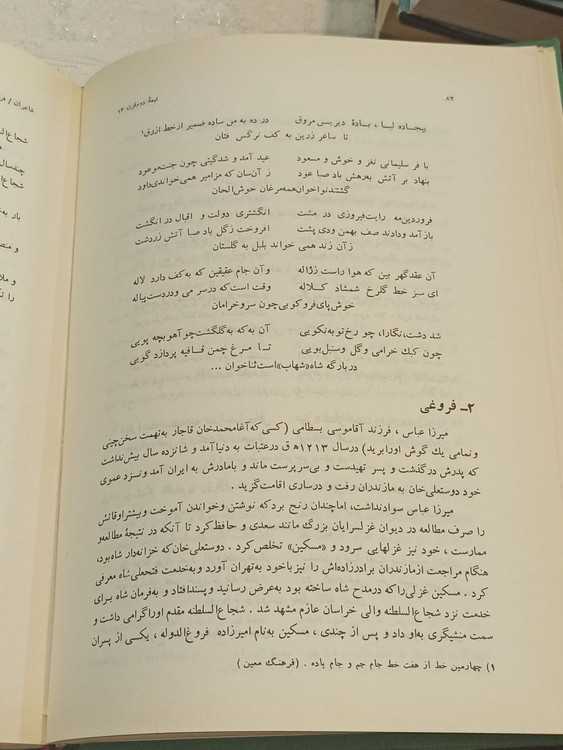 ۸۴
نیمهٔ دوم قرن ۱۳
بیجاده لبا ، بادهٔ دیریـن مروق
در ده به من ساده ضمیر از خط ازرق۱
تا ساغر زرین به کف نرگس فتان
با فر سلیمانی نغز و خوش و مسعود
عید آمد و شد گیتی چون جنت موعود
بنهاد بر آتش بجهش باد صبا عود
ز آن‌سان که مزامیر همی‌خواندی داود
گشتند نواخوان همه مرغان خوش‌الحان
فروردین‌مه رایت فیروزی در مشت
انگشتری دولت و اقبال در انگشت
باز آمد و دادند صف بهمن و دی پشت
افروخت ز گل باد صبا آتش زردشت
ز آن زند همی خواند بلبل به گلستان
آن عقد گهر بین که هوا راست ز ژاله
و آن جام عقیقین که به کف دارد لاله
ای سبز خط گلرخ شمشاد کـلاله
وقت است که در سر می و در دست پیاله
خوش پای فرو کوبی چون سرو خرامان
شد دشت، نگارا، چو رخ تو به نکویی
آن به که به گلگشت چو آهو بچه پویی
چون کبك خرامی و گل و سنبل بویی
تـا مـرغ چمن قـافیه پردازد گویی
در بارگه شاه «شهاب» است ثناخوان ...
۲ـ فروغی
میرزا عباس ، فرزند آقاموسی بسطامی (کسی که آغامحمدخان قاجار به تهمت سخن‌چینی
و نمامی یك گوش او را برید) در سال ۱۲۱۳ ه‍ ق در عتبات به دنیا آمد و شانزده سال بیش نداشت
که پدرش درگذشت و پسر تهیدست و بی‌سرپرست ماند و با مادرش به ایران آمد و نزد عموی
خود دوستعلی‌خان به مازندران رفت و در ساری اقامت گزید .
میرزا عباس سواد نداشت، اما چندان رنج برد که نوشتن و خواندن آموخت و بیشتر اوقاتش
را صرف مطالعه در دیوان غزلسرایان بزرگ مانند سعدی و حافظ کرد تا آنکه در نتیجهٔ مطالعه و
ممارست ، خود نیز غزلهایی سرود و «مسکین» تخلص کرد . دوستعلی‌خان که خزانه‌دار شاه بود،
هنگام مراجعت از مازندران برادرزاده‌اش را نیز با خود به تهران آورد و به خدمت فتحعلی‌شاه معرفی
کرد . مسکین غزلی را که در مدح شاه ساخته بود به عرض رسانید و پسند افتاد و به فرمان شاه بـرای
خدمت نزد شجاع‌السلطنه والی خراسان عازم مشهد شد . شجاع‌السلطنه مقدم او را گرامی داشت و
سمت منشیگری به او داد و پس از چندی ، مسکین به نام امیرزاده فروغ‌الدوله ، یکـی از پسران
۱) چهارمین خط از هفت خط جام جم و جام باده . (فرهنگ معین)
شاعران /
شجاع‌ال
چند سال
شجاع‌ال
باز به
و منص
و ملا
را